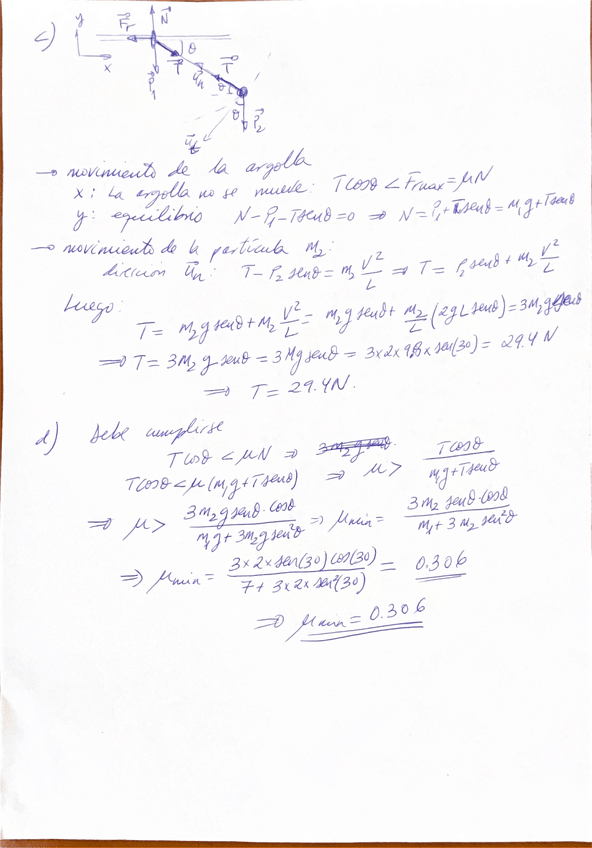 c)
y
x
F⃗r N⃗ θ
P⃗1 T⃗ u⃗n T⃗
θ θ P⃗2
u⃗t
→ movimiento de la argolla
x: La argolla no se mueve: Tcosθ < Frmax = μN
y: equilibrio N-P1-Tsenθ=0 ⇒ N = P1+Tsenθ = m1g+Tsenθ
→ movimiento de la partícula m2:
dirección u⃗n: T-P2 senθ = m2 V²/L ⇒ T = P2 senθ + m2 V²/L
Luego:
T = m2g senθ + m2 V²/L = m2g senθ + m2/L (2gL senθ) = 3m2g senθ
⇒ T = 3m2 g senθ = 3Mg senθ = 3x2x9,8x sen(30) = 29.4 N
⇒ T = 29.4N.
d) Debe cumplirse
Tcosθ < μN ⇒ 3m2g senθ.
Tcosθ < μ(m1g+Tsenθ) ⇒ μ > Tcosθ/(m1g+Tsenθ)
⇒ μ > 3m2g senθ·cosθ/(m1g+3m2g sen²θ) ⇒ μmin = 3m2 senθ·cosθ/(m1+3m2 sen²θ)
⇒ μmin = 3x2x sen(30) cos(30)/(7+3x2x sen²(30)) = 0.306
⇒ μmin = 0.306